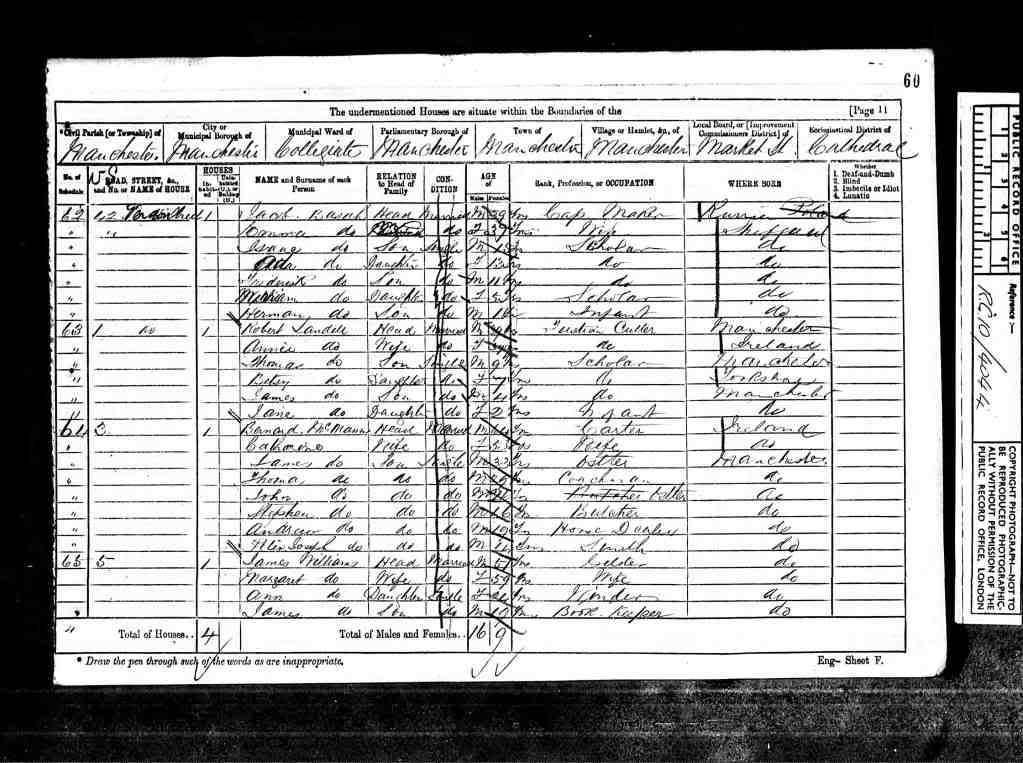 60
The undermentioned Houses are situate within the Boundaries of the [Page 11
Civil Parish [or Township] of City or Municipal Borough of Municipal Ward of Parliamentary Borough of Town of Village or Hamlet, &c., of Local Board, or [Improvement Commissioners District] of Ecclesiastical District of
Manchester Manchester Collegiate Manchester Manchester Manchester Market St Cathedral
No. of Schedule ROAD, STREET, &c., and No. or NAME of HOUSE HOUSES Inhabited Uninhabited (U.), or Building (B.) NAME and Surname of each Person RELATION to Head of Family CONDITION AGE of Males Females Rank, Profession, or OCCUPATION WHERE BORN Whether 1. Deaf-and-Dumb 2. Blind 3. Imbecile or Idiot 4. Lunatic
62 42 1 Jacob Head Married M 39 Cap Maker Russia Poland
" " do do F 39 Wife Sheffield
" do Son Single M Scholar do
" Ada do Daughter do F do do
" Frederick do Son do M 11 do do
" Miriam do Daughter do F 5 Scholar do
" Herman do Son do M 1 Infant do
63 1 do 1 Robert Landell Head Married M Fustian Cutter Manchester
" Annie do Wife do F do Ireland
" Thomas do Son Single M 9 Scholar Manchester
" Betsy do Daughter do F do Yorkshire
" James do Son do M 4 do Manchester
" Jane do Daughter do F 2 Infant do
64 3 1 Bernard McManus Head Married M Carter Ireland
" Catharine Wife do F 53 Wife do
" James do Son Single M 33 Ostler Manchester
" Thomas do do do M 29 Coachman do
" John do do do M Butcher Ostler do
" Stephen do do do M 16 Butcher do
" Andrew do do do M 19 Horse Dealer do
" Joseph do do do M 14 Smith do
65 5 1 James Williams Head Married M Gilder do
Margaret do Wife do F 59 Wife do
Ann do Daughter Single F do
" James do Son do M 19 Book Keeper do
" Total of Houses.. 4 Total of Males and Females.. 16 9
* Draw the pen through such of the words as are inappropriate. Eng- Sheet F.
PUBLIC RECORD OFFICE
1 2 3 4 5 6
Reference :-
RG 10/4044
COPYRIGHT PHOTOGRAPH-NOT TO BE REPRODUCED PHOTOGRAPHICALLY WITHOUT PERMISSION OF THE PUBLIC RECORD OFFICE, LONDON